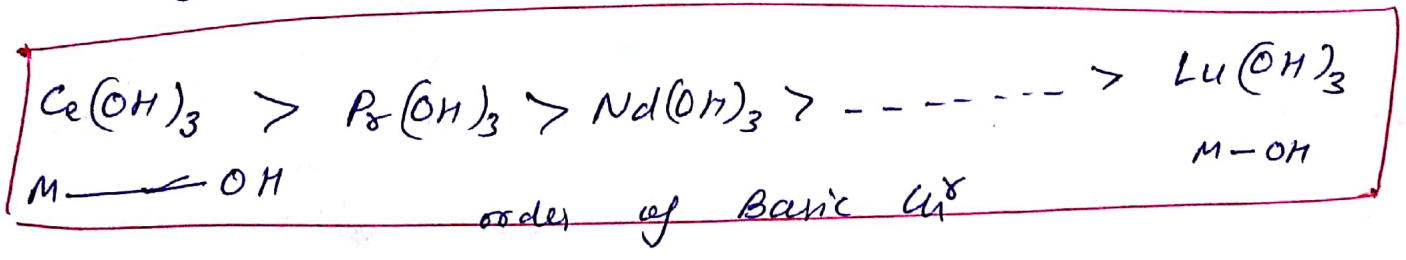 Ce(OH)₃ > Pr(OH)₃ > Nd(OH)₃ > - - - - - - - > Lu(OH)₃
M——OH M-OH
order of Basic Chʳ